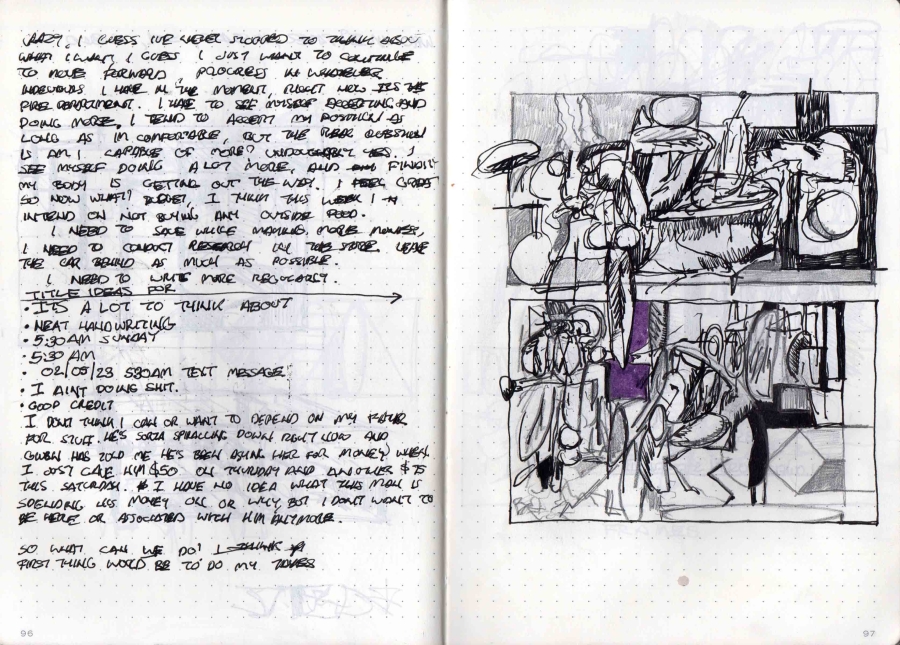 CRAZY, I GUESS I'VE NEVER STOPPED TO THINK ABOUT
WHAT I WANT I GUESS. I JUST WANT TO CONTINUE
TO MOVE FORWARD, PROGRESS IN WHATEVER
I HAVE IN THE MOMENT, RIGHT NOW ITS THE
FIRE DEPARTMENT. I HAVE TO SEE MYSELF ACCEPTING AND
DOING MORE, I TEND TO ACCEPT MY POSITION AS
LONG AS I'M COMFORTABLE, BUT THE REAL QUESTION
IS AM I CAPABLE OF MORE? UNDOUBTABLY YES. I
SEE MYSELF DOING A LOT MORE, AND FINALLY
MY BODY IS GETTING OUT THE WAY. I FEEL GREAT
SO NOW WHAT? BUDGET, I THINK THIS WEEK I
INTEND ON NOT BUYING ANY OUTSIDE FOOD.
I NEED TO SAVE WHILE MAKING MORE MONIES,
I NEED TO CONDUCT RESEARCH IN THE STORE. LEAVE
THE CAR BEHIND AS MUCH AS POSSIBLE.
I NEED TO WRITE MORE REGULARLY.
TITLE IDEAS FOR
• ITS A LOT TO THINK ABOUT
• NEAT HANDWRITING
• 5:30 AM SUNDAY
• 5:30 AM
• 02/05/23 530AM TEXT MESSAGE
• I AINT DOING SHIT.
• GOOD CREDIT
I DON'T THINK I CAN OR WANT TO DEPEND ON MY FATHER
FOR STUFF. HE'S SORTA SPIRALLING DOWN RIGHT NOW AND
GWEN HAS TOLD ME HE'S BEEN ASKING HER FOR MONEY WHEN
I JUST GAVE HIM $50 ON THURSDAY AND ANOTHER $75
THIS SATURDAY. I HAVE NO IDEA WHAT THIS MAN IS
SPENDING HIS MONEY ON OR WHY BUT I DON'T WANT TO
BE HERE OR ASSOCIATED WITH HIM ANYMORE.
SO WHAT CAN WE DO? I THINK
FIRST THING WOULD BE TO DO MY TAXES
96
97